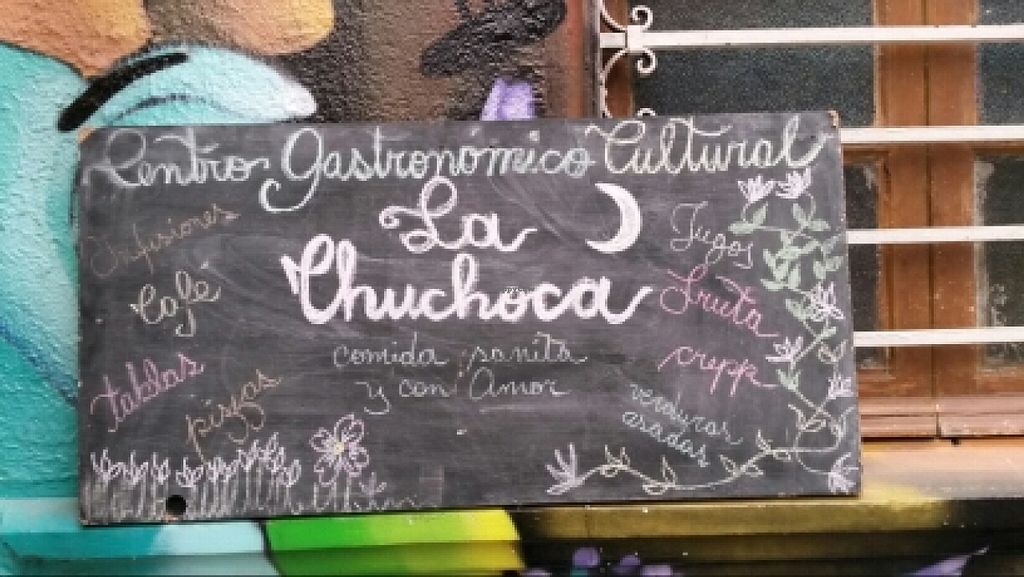 Centro Gastronómico Cultural
La
Chuchoca
comida sanita
y con Amor
Infusiones
Café
tablas
pizzas
Jugos
Fruta
crepp
verduras
asadas